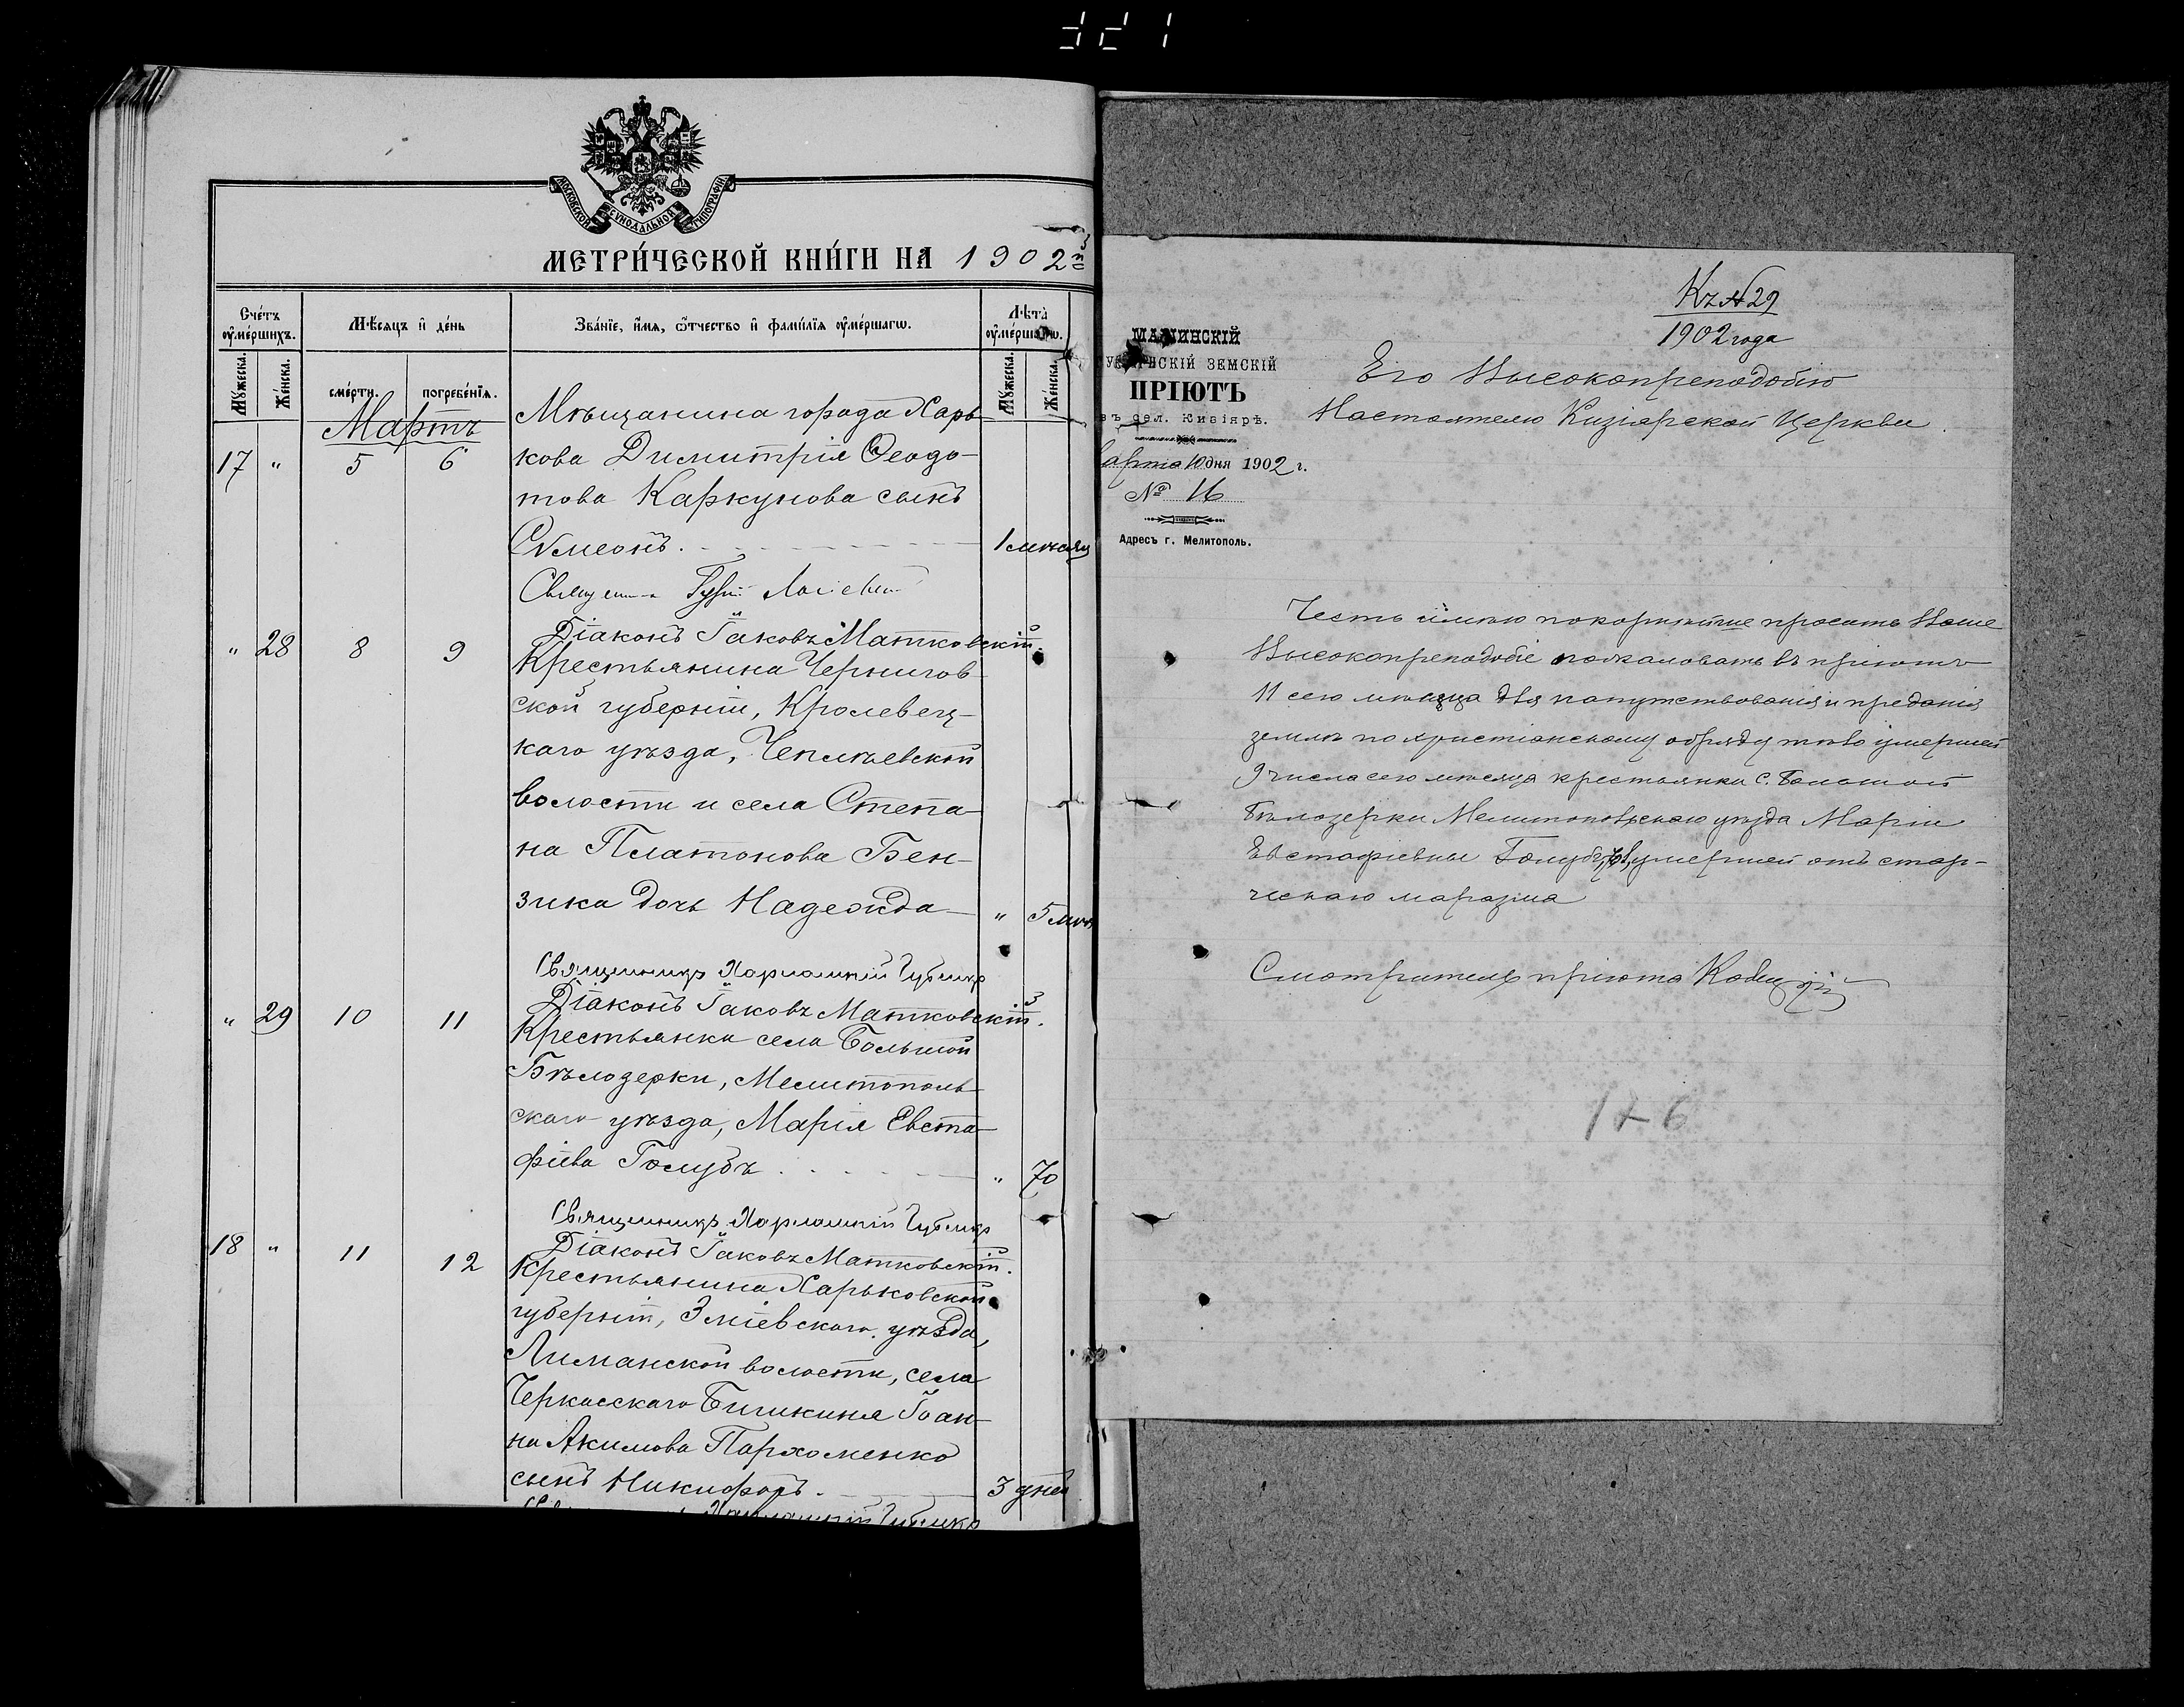 321
МОСКОВСКОЙ СѴНОДАЛЬНОЙ ТИПОГРАФІИ
МЕТРИ́ЧЕСКОЙ КНИ́ГИ НА 1902
Сче́тъ ᲂу҆ме́ршихъ.
Мѣ́сяцъ и҆ де́нь
Зва́нїе, и҆́мя, ѻ҆́тчество и҆ фамі́лїя ᲂу҆ме́ршагѡ.
Лѣ́та ᲂу҆ме́ршагѡ.
Мꙋ́жеска.
Же́нска.
сме́рти.
погребе́нїя.
Мꙋ́жеска.
Же́нска.
Мартъ
17 " 5 6
Мѣщанина города Харь-
кова Димитрія Ѳеодо-
това Каркунова сынъ
Сѵмеонъ. 1 мѣсяц
Діаконъ Іаковъ Матковскій.
" 28 8 9
Крестьянина Чернигов-
ской губерніи, Кролевец-
каго уѣзда, Чеплѣевской
волости и села Степа-
на Платонова Бен-
зика дочь Надежда " 5 мѣс
Священникъ Харлампій
Діаконъ Іаковъ Матковскій.
" 29 10 11
Крестьянка села Большой
Бѣлозерки, Мелитополь-
скаго уѣзда, Марія Евста-
фіева Голубъ " 70
Священникъ Харлампій
Діаконъ Іаковъ Матковскій.
18 " 11 12
Крестьянина Харьковской
губерніи, Зміевскаго уѣзда,
Лиманской волости, села
Черкасскаго Бишкиня Іоан-
на Акимова Пархоменко
сынъ Никифоръ. 3 дней
Къ № 29
1902 года
НСКІЙ ЗЕМСКІЙ
ПРІЮТЪ
въ сел. Кизіярѣ.
арта 10 дня 1902 г.
№ 16
Адресъ г. Мелитополь.
Его Высокопреподобію
Настоятелю Кизіярской Церкви.
Честь имѣю покорнѣйше просить Ваше
Высокопреподобіе пожаловать въ пріютъ
11 сего мѣсяца для напутствованія и преданія
землѣ по христіанскому обряду тѣло умершей
9 числа сего мѣсяца крестьянки с. Большой
Бѣлозерки Мелитопольскаго уѣзда Маріи
Евстафіевны умершей отъ стар-
ческаго маразма
Смотритель пріюта
176